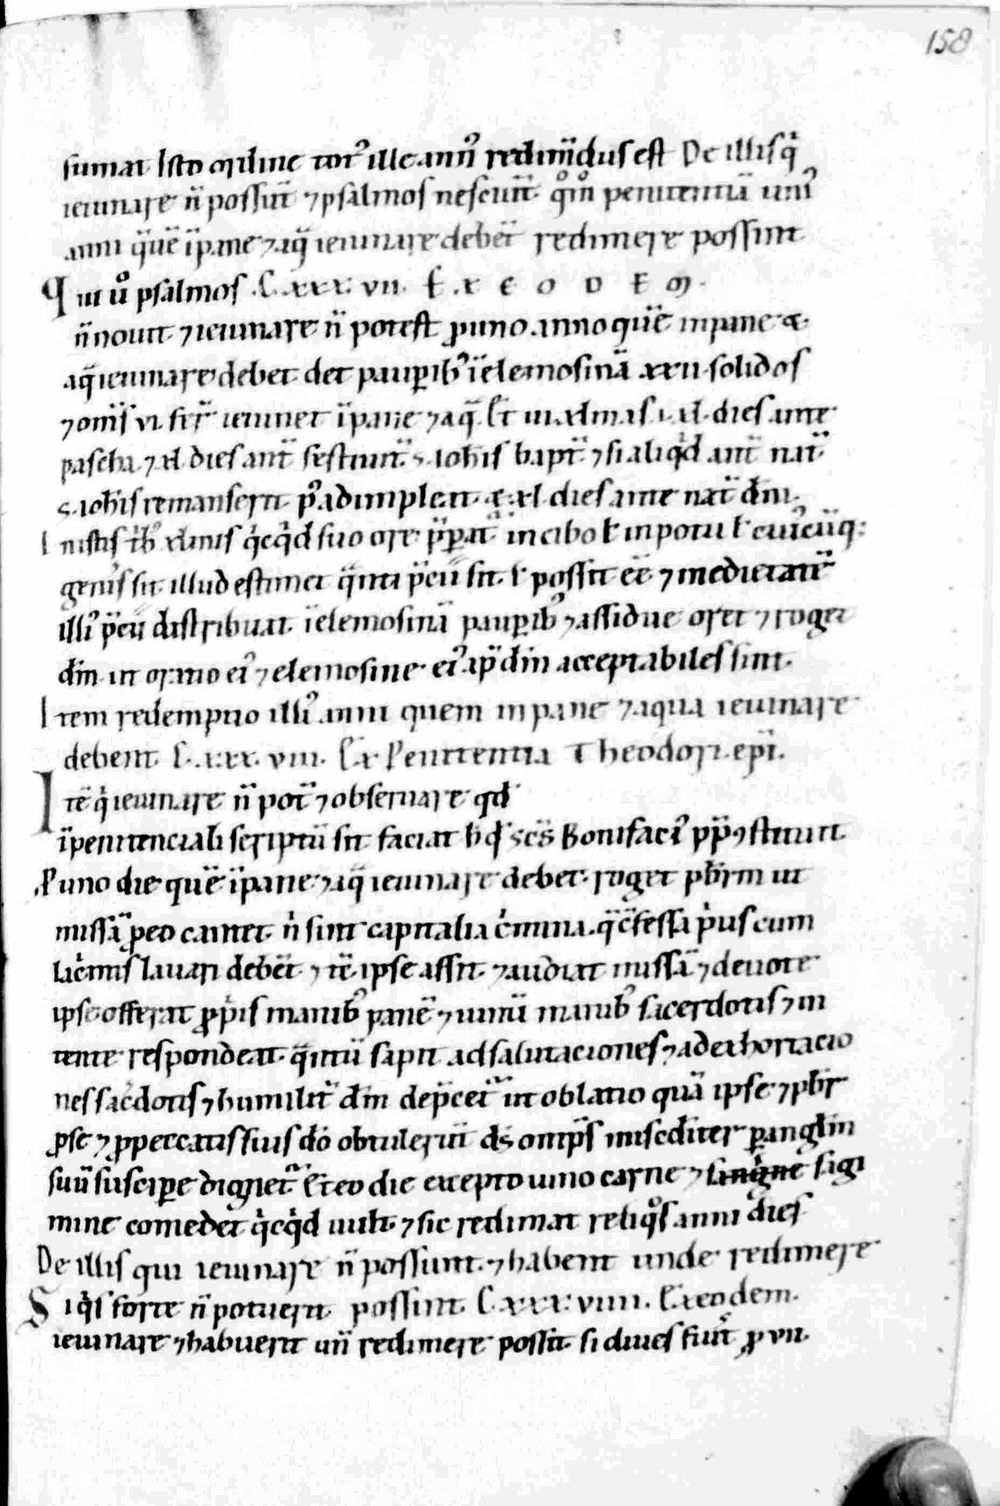 158
sumat Isto ordine tot᷒ ille ann᷒ redim̄dus est De illis q̇
ieiunare n̄ possut̄ ⁊ psalmos nesciun̄t. q̊m̊ penitentiā uni᷒
anni quē ī pane ⁊ aq̄ ieiunare debet̄ redimere possint
Qui ů psalmos .C.xxx.vii. E.x E O D E M.
n̄ nouit ⁊ ieiunare n̄ potest ꝓ uno anno quē in pane &
aq̄ ieiunare debet det pauꝑib᷒ ī elemosinā xxii solidos
⁊ om̄s vi fer̄ ieiunet ī pane ⁊ aq̄. Et̄ iii xl.mas .i. xl. dies ante
pascha. ⁊ xl. dies ant̄ festiuit̄. s. ioh̄is bapt̄. ⁊ si aliq̇d ant̄ nat̄.
s. ioh̄is remanserit. p᷒ adimpleat. & xl dies ante nat̄ dn̄i.
In istis ṫb᷒ xlmis q̇cq̇d suo ore p̄ꝑat̄ in cibo ł in potu ł cui᷒cūq:
gen̄is sit. illud estimet q̄nti p̄cii sit. ł possit eē ⁊ medietatē
illi᷒ p̄cii distribuat. ī elemosinā pauꝑib᷒ ⁊ assidue oret ⁊ roget
dm̄. ut oratio ei᷒ ⁊ elemosine ei᷒ ap̄ dm̄ acceptabiles sint.
Item redemptio illi᷒ anni quem in pane ⁊ aqua ieiunare
debent. C.xxx.viii. Ex Penitentia Theodori. ep̄i.
Itē q̇ ieiunare n̄ pot̄ ⁊ obseruare qd̄
ī penitenciali scriptū sit faciat h̄ q̄ sc̄s Bonifaci᷒ pp̄ ꝯstituit
Ꝓ uno die quē ī pane ⁊ aq̄ ieiunare debet. roget pb̄rm ut
missā ꝓ eo cantet. n̊ sint capitalia c̊mina. q̄ cf̄essa p̊us cum
lac̊mis lauari debēt. ⁊ tē ipse assit. ⁊ audiat missā ⁊ deuote
ipse offerat ꝓp̊is manib᷒ panē ⁊ uinū manib᷒ sacerdotis ⁊ in
tente respondeat. q̄ntū sapit ad salutaciones ⁊ ad exhortacio
nes sac̄dotis ⁊ humilit̄ dm̄ dep̄cet̄ ut oblatio quā ipse ⁊ pb̄r
ꝓ se ⁊ ꝓ peccatis suis dō obtulerūt ds̄ omp̄s misc̄diter ꝑ angl̄m
suū suscipe dignet̄. Et̄ eo die excepto uino carne ⁊ sigi
mine comedet q̇cq̇d uult. ⁊ sic redimat reliq̊s anni dies
De illis qui ieiunare n̄ possunt. ⁊ habent unde redimere
Siq̊s forte n̄ potuerit possint. C.xxx.viiii. Ex eodem.
ieiunare ⁊ habuerit un̄ redimere possit. si diues fuit̄ ꝓ vii.